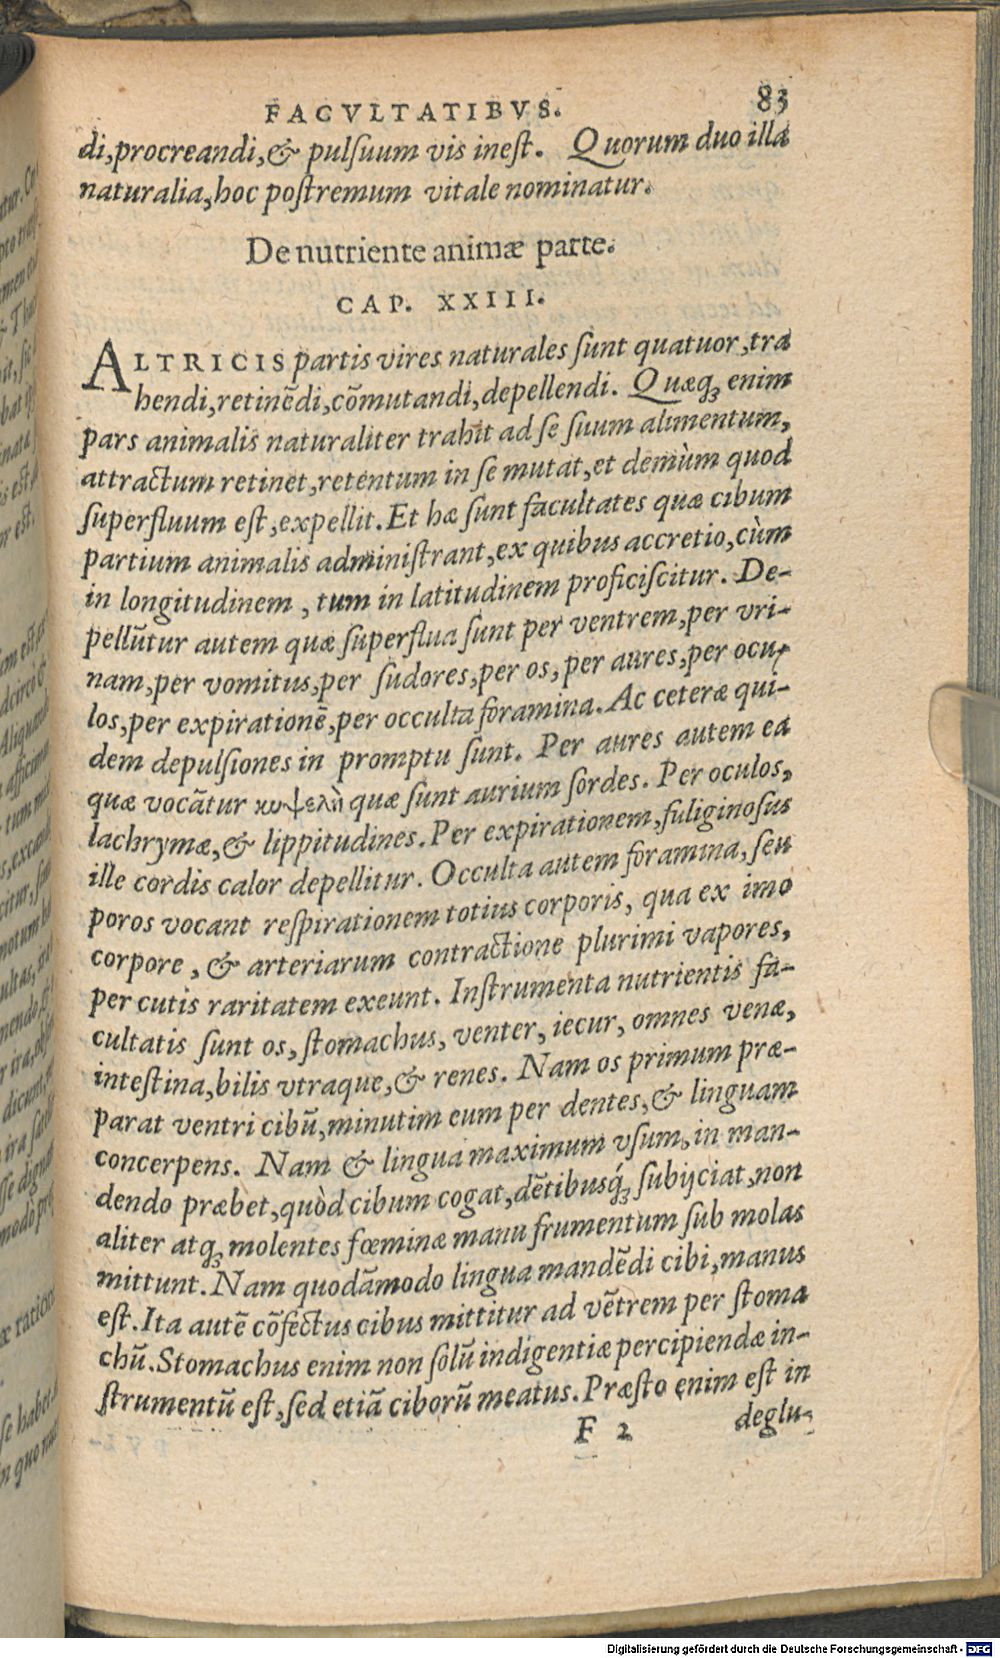 FACVLTATIBVS. 83
di,procreandi,& pulſuum vis ineſt. Quorum duo illa
naturalia,hoc poſtremum vitale nominatur.
De nutriente animæ parte.
CAP. XXIII.
ALTRICIS partis vires naturales ſunt quatuor,tra
hendi,retinẽdi,cõmutandi,depellendi. Quæq; enim
pars animalis naturaliter trahit ad ſe ſuum alimentum,
attractum retinet,retentum in ſe mutat,et demùm quod
ſuperfluum eſt,expellit.Et hæ ſunt facultates quæ cibum
partium animalis adminiſtrant,ex quibus accretio,cùm
in longitudinem, tum in latitudinem proficiſcitur. De-
pellũtur autem quæ ſuperflua ſunt per ventrem,per vri-
nam,per vomitus,per ſudores,per os,per aures,per ocu-
los,per expirationẽ,per occulta foramina.Ac ceteræ qui-
dem depulſiones in promptu ſunt. Per aures autem ea
quæ vocãtur κωψελὴ quæ ſunt aurium ſordes. Per oculos,
lachrymæ,& lippitudines.Per expirationem,fuliginoſus
ille cordis calor depellitur. Occulta autem foramina,ſeu
poros vocant reſpirationem totius corporis, qua ex imo
corpore, & arteriarum contractione plurimi vapores,
per cutis raritatem exeunt. Inſtrumenta nutrientis fa-
cultatis ſunt os,ſtomachus, venter, iecur, omnes venæ,
inteſtina,bilis vtraque,& renes. Nam os primum præ-
parat ventri cibũ,minutim eum per dentes,& linguam
concerpens. Nam & lingua maximum vſum,in man-
dendo præbet,quòd cibum cogat,dẽtibusq́; ſubijciat,non
aliter atq; molentes fœminæ manu frumentum ſub molas
mittunt.Nam quodãmodo lingua mandẽdi cibi,manus
eſt.Ita autẽ cõfectus cibus mittitur ad vẽtrem per ſtoma
chũ.Stomachus enim non ſolũ indigentiæ percipiendæ in-
ſtrumentũ eſt,ſed etiã ciborũ meatus.Præſto enim eſt in
F 2 deglu-
Digitalisierung gefördert durch die Deutsche Forschungsgemeinschaft - DFG